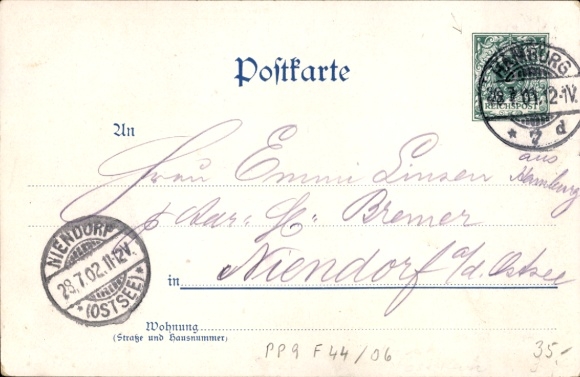 Postkarte
REICHSPOST
HAMBURG
* 7 d
An
Frau Emmi Linsen
aus
Hamburg
Bremer
in Niendorf a/d. Ostsee
NIENDORF
29.7.02.11-12V.
*(OSTSEE)*
Wohnung
(Straße und Hausnummer)
PP9 F44/06
35.-